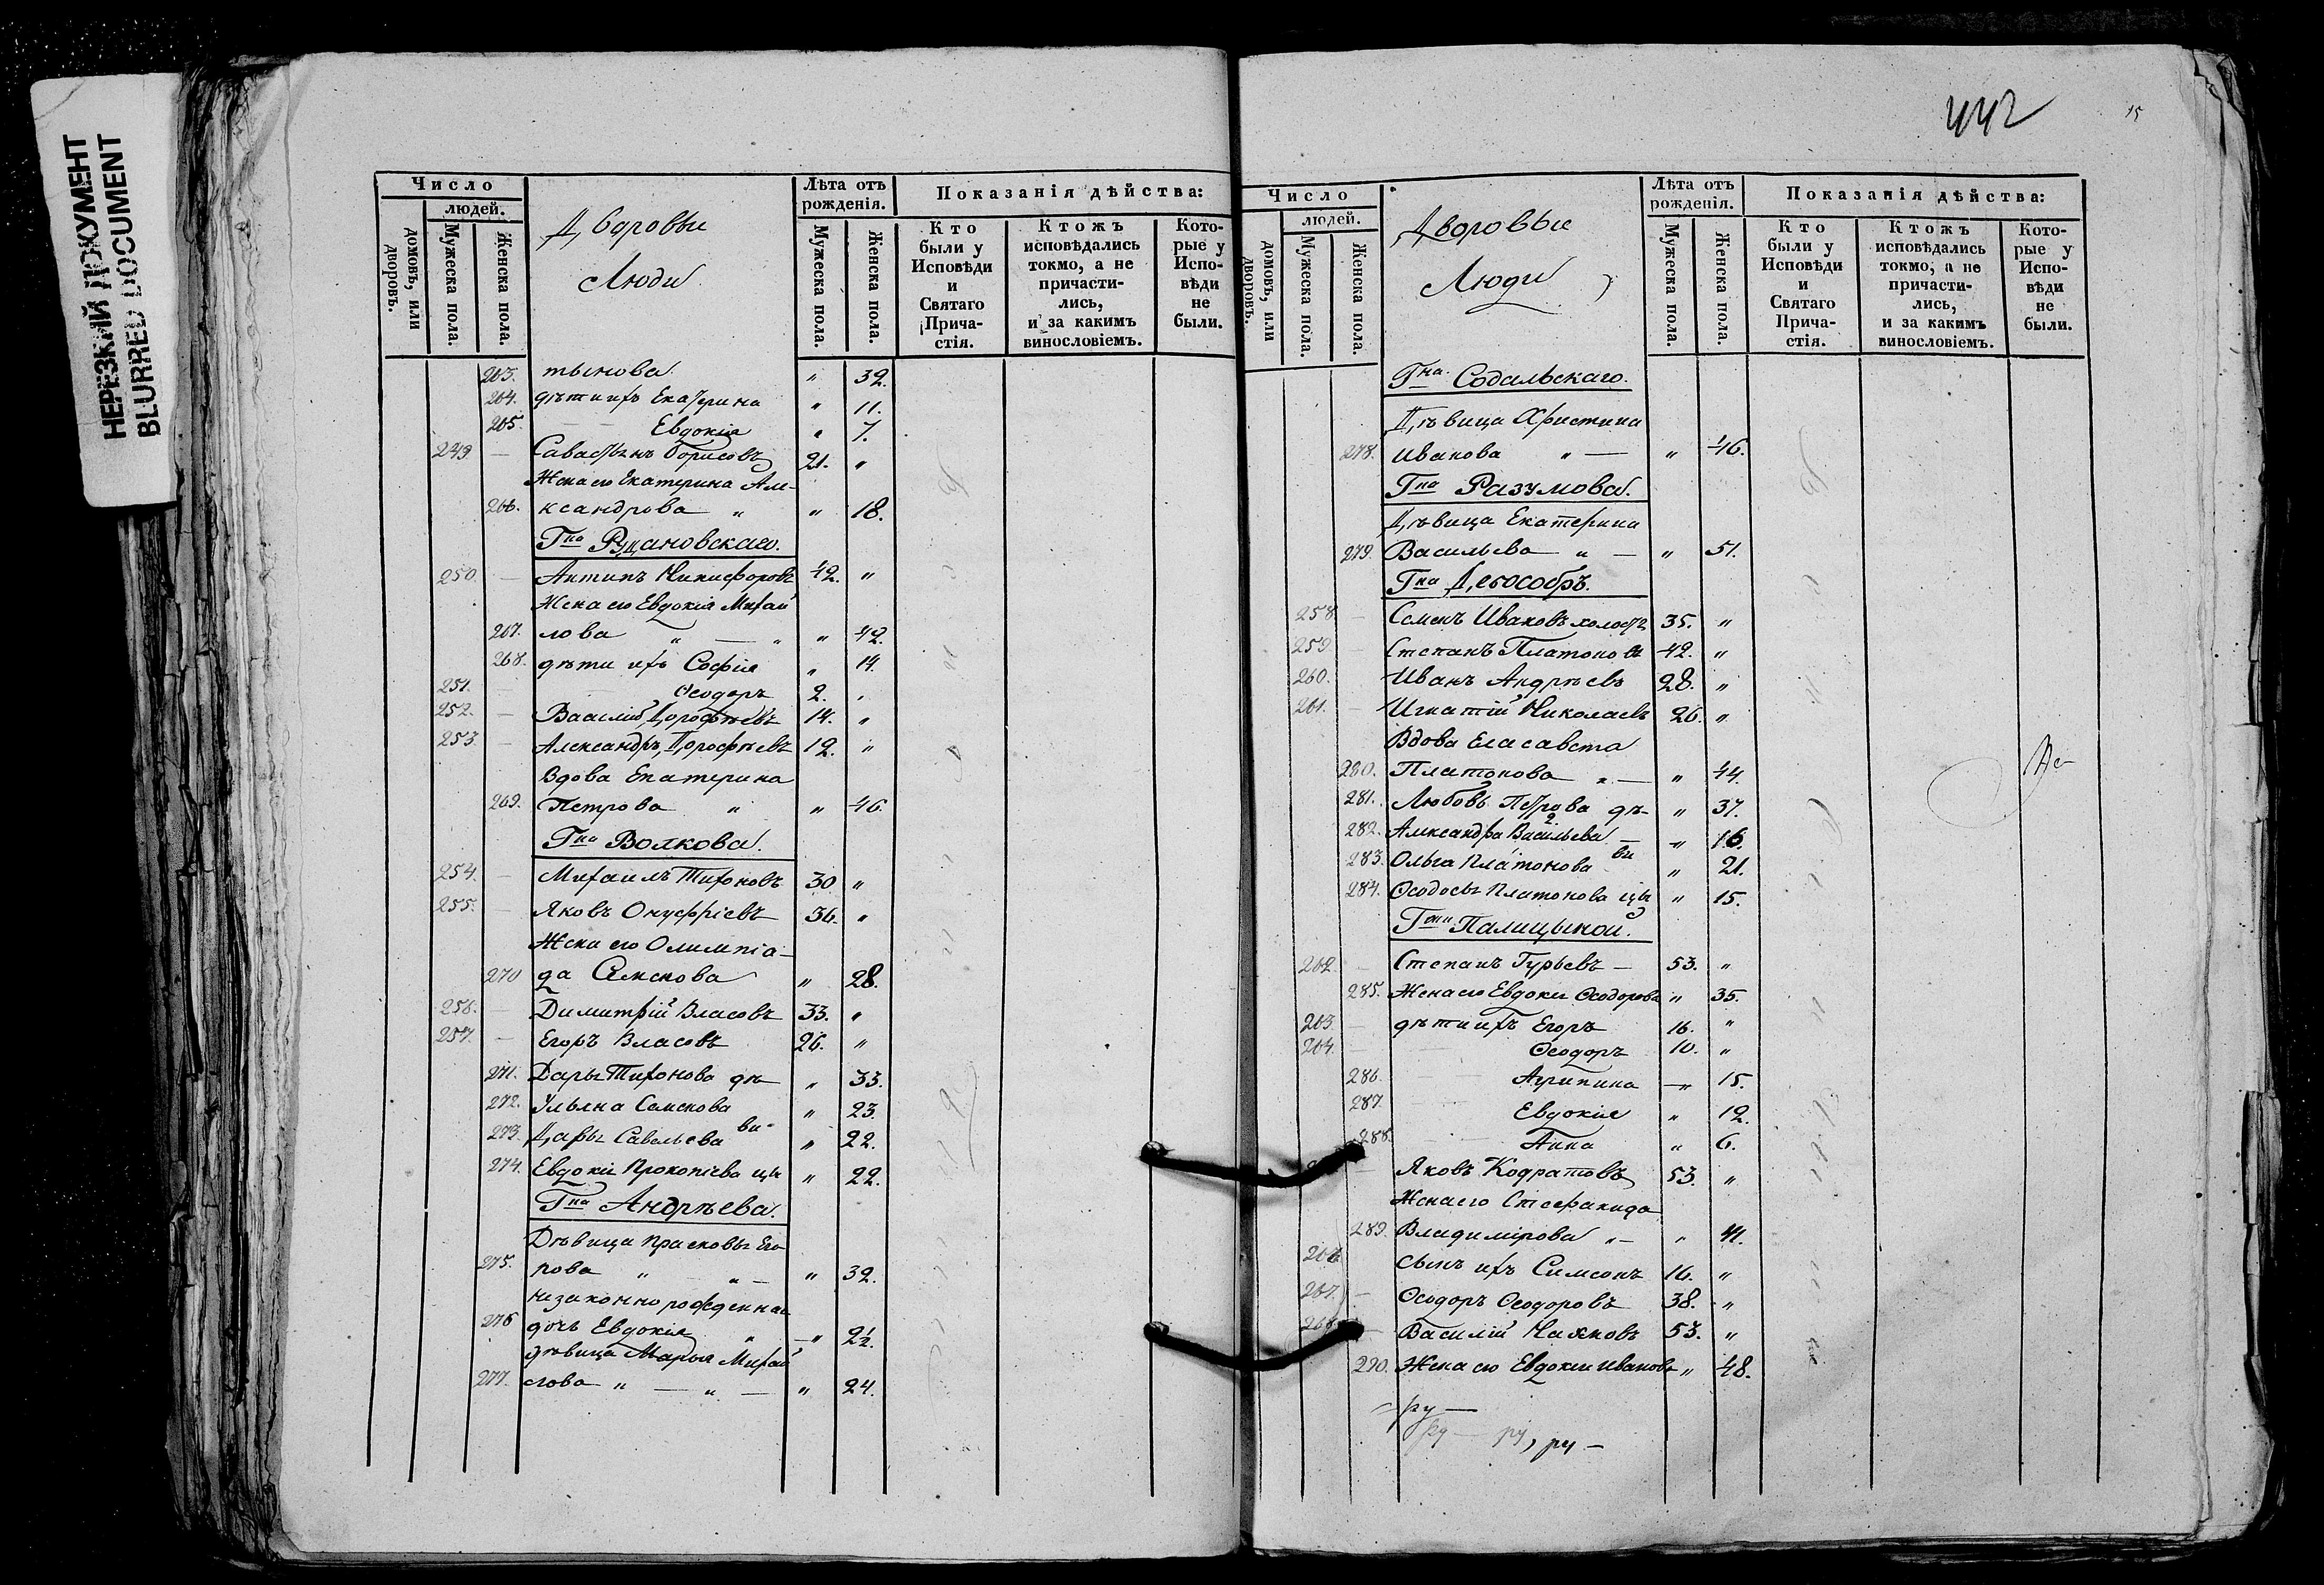 НЕРЕЗКИЙ ДОКУМЕНТ
BLURRED DOCUMENT
Число
людей.
домовъ, или дворовъ.
Мужеска пола.
Женска пола.
Дворовые
Люди
Лѣта отъ рожденія.
Мужеска пола.
Женска пола.
Показанія дѣйства:
Кто были у Исповѣди и Святаго Прича- стія.
Ктожъ исповѣдались токмо, а не причасти- лись, и за какимъ винословіемъ.
Кото- рые у Испо- вѣди не были.
203. тынова " 32.
204. дѣти ихъ Екатерина " 11.
205. Евдокія " 7.
249 — Савастьянъ Борисовъ 21. "
Жена его Екатерина Але-
206. ксандрова " " 18.
Гна Рудановскаго.
250. — Антипъ Никифоровъ 42. "
Жена его Евдокія Михай
207. лова " — " " 42.
268. дѣти ихъ Софія " 14.
251. — Ѳеодоръ 2. "
252. — Василій Дорофѣевъ 14. "
253. — Александръ Дорофѣевъ 12. "
Вдова Екатерина
269. Петрова " " 46.
Гна Волкова.
254. — Михаилъ Тихоновъ 30 "
255. — Яковъ Онуфріевъ 36. "
Жена его Олимпіа-
270 да Семенова " 28.
256. — Димитрій Власовъ 33. "
257. — Егоръ Власовъ 26. "
271. Дарья Тихонова дѣ " 33.
272. Ульяна Семенова " 23.
273. Дарья Савельева ви- " 22.
274. Евдокія Прокопіева цы " 22.
Гна Андрѣева.
Дѣвица Прасковья Его
275. рова " " — " 32.
незаконно рожденная
276 дочь Евдокія " — " 2½.
дѣвица Марья Михай
277. лова " — " — " 24.
442
15
Число
людей.
домовъ, или дворовъ.
Мужеска пола.
Женска пола.
Дворовые
Люди
Лѣта отъ рожденія.
Мужеска пола.
Женска пола.
Показанія дѣйства:
Кто были у Исповѣди и Святаго Прича- стія.
Ктожъ исповѣдались токмо, а не причасти- лись, и за какимъ винословіемъ.
Кото- рые у Испо- вѣди не были.
Гна Содальскаго.
Дѣвица Христина
278. Иванова " — " 46.
Гна Разумова.
Дѣвица Екатерина
279. Васильева " — " 51.
Гна
258 — Семенъ Ивановъ холостъ 35. "
259 — Степанъ Платоновъ 42. "
260. Иванъ Андрѣевъ 28. "
261. — Игнатій Николаевъ 26. "
Вдова Елисавета
280. Платонова " — " 44.
281. Любовь Петрова дѣ- " 37.
282. Александра Васильева — " 16.
283. Ольга Платонова ви " 21.
284. Ѳеодосья Платонова цы " 15.
Гжи Палицыной.
262. — Степанъ Гурьевъ — 53. "
285. Жена его Евдокія Ѳеодорова " 35.
263 — дѣти ихъ Егоръ 16. "
264. — Ѳеодоръ 10. "
286. Агрипина — " 15.
287. Евдокія " 12.
288. Анна " 6.
— Яковъ Кодратовъ 53. "
Жена его Стефанида
289. Владимірова " — " 41.
266 сынъ ихъ Симеонъ 16. "
267. — Ѳеодоръ Ѳеодоровъ 38. "
268 — Василій 53. "
290. Жена его Евдокія Иванова " 48.
ру —
ру — ру, ру —